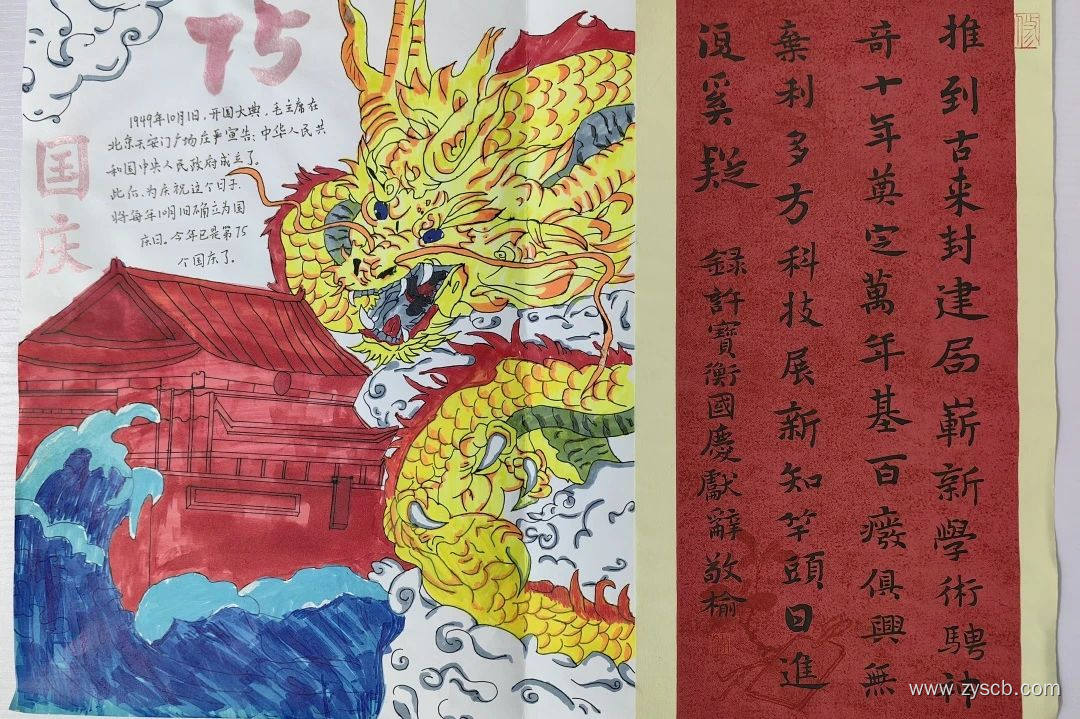 75
国庆
1949年10月1日，开国大典，毛主席在
北京天安门广场庄严宣告：中华人民共
和国中央人民政府成立了。
此后、为庆祝这个日子.
将每年10月1日确立为国
庆日。今年已是第75
个国庆了。
推到古来封建局嶄新學術騁神
奇十年奠定萬年基百癈俱興無
棄利多方科技展新知竿頭日進
復奚疑
録許寶衡國慶獻辭敬榆
www.zyscb.com